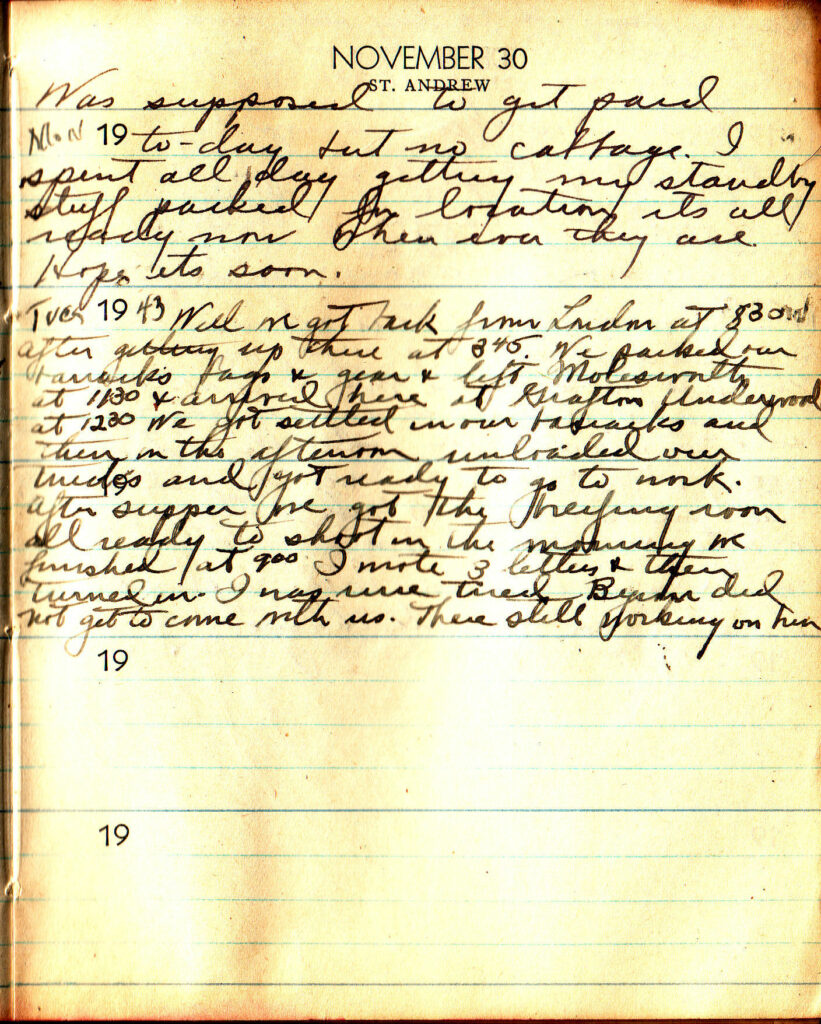 NOVEMBER 30
ST. ANDREW
Was supposed to get paid
Mon 19 to-day but no cabbage. I
spent all day getting my standby
stuff packed for location, its all
ready now when ever they are.
Hope its soon.
Tues 19 43 Well we got back from London at 830
after getting up there at 845. We packed our
barracks bags & gear & left Molesworth
at 1130 & arrived here at Grafton Underwood
at 1230 We got settled in our barracks and
then in the afternoon unloaded our
trucks and got ready to go to work.
19
After supper we got the Briefing room
all ready to shoot in the morning we
finished at 900 I wrote 3 letters & then
turned in. I was tired. did
not get to come with us. There still working on him
19
19